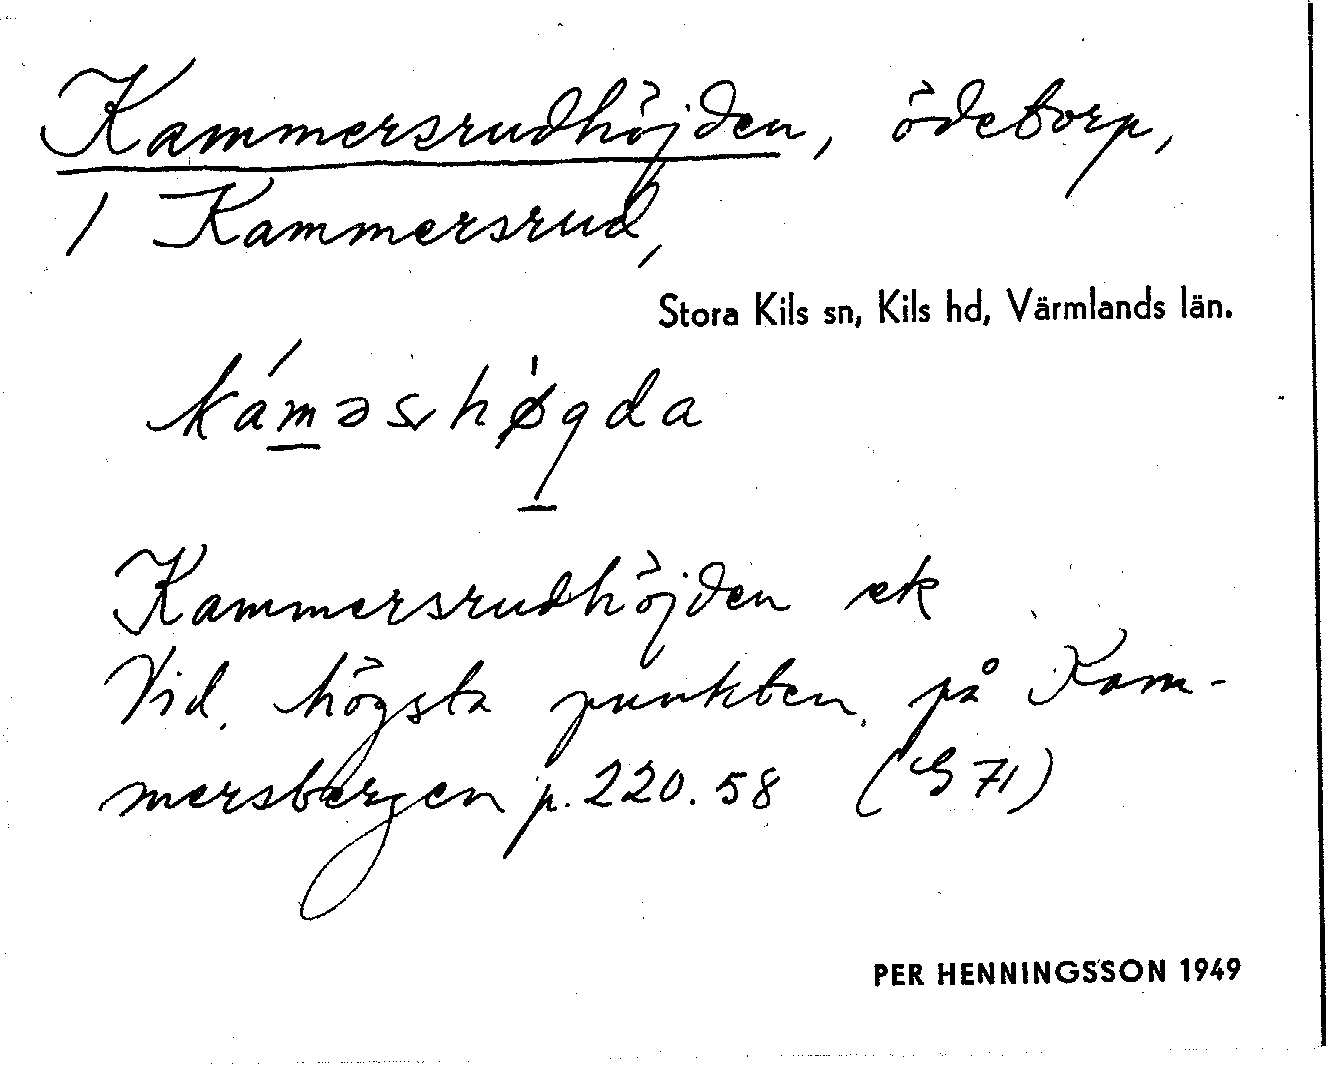 Kammersrudhöjden, ödetorp,
/ Kammersrud,
Stora Kils sn, Kils hd, Värmlands län.
káməshø̀gda
Kammersrudhöjden ek
Vid högsta punkten på Kam-
mersbergen p. 220.58 (G 71)
PER HENNINGSSON 1949